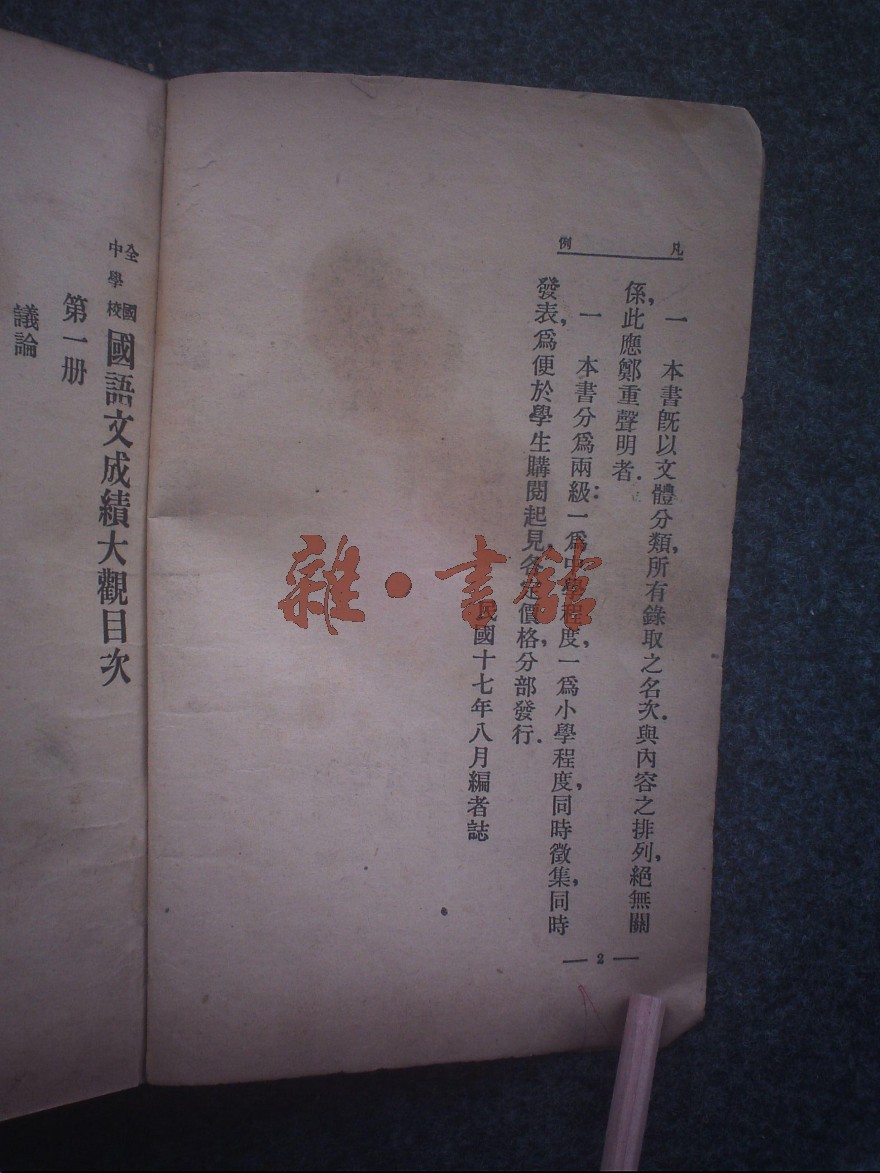 凡例
一　本書旣以文體分類，所有錄取之名次．與內容之排列，絕無關
係，此應鄭重聲明者．
一　本書分爲兩級：一爲中學程度，一爲小學程度，同時徵集，同時
發表，爲便於學生購閱起見，各定價格，分部發行．
民國十七年八月編者誌
2
雜·書館
全國中學校國語文成績大觀目次
第一册
議論